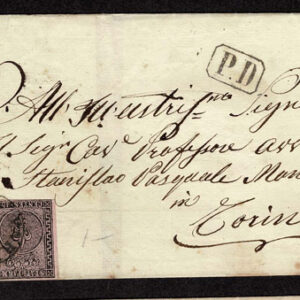 P.D
All Illustris.mo Sign
Sign. Cav. Professore Avv
Stanislao Pasquale Man
in
Torin